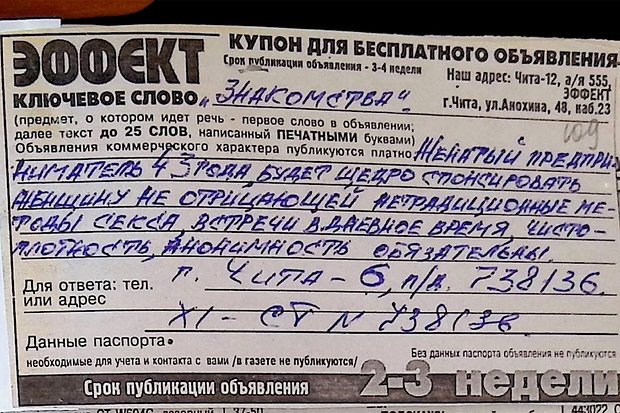 ЭФФЕКТ
КУПОН ДЛЯ БЕСПЛАТНОГО ОБЪЯВЛЕНИЯ
Срок публикации объявления - 3-4 недели
Наш адрес: Чита-12, а/я 555,
ЭФФЕКТ
г.Чита, ул.Анохина, 48, каб.23
КЛЮЧЕВОЕ СЛОВО „ЗНАКОМСТВА"
109
(предмет, о котором идет речь - первое слово в объявлении;
далее текст до 25 СЛОВ, написанный ПЕЧАТНЫМИ буквами)
Объявления коммерческого характера публикуются платно ЖЕНАТЫЙ ПРЕДПРИ-
НИМАТЕЛЬ 43 ГОДА, БУДЕТ ЩЕДРО СПОНСИРОВАТЬ
ЖЕНЩИНУ НЕ ОТРИЦАЮЩЕЙ НЕТРАДИЦИОННЫЕ МЕ-
ТОДЫ СЕКСА, ВСТРЕЧИ В ДНЕВНОЕ ВРЕМЯ, ЧИСТО-
ПЛОТНОСТЬ, АНОНИМНОСТЬ ОБЯЗАТЕЛЬНЫ.
Для ответа: тел. г. ЧИТА - 6, п/д. 738136.
или адрес
XI - СТ N 738136
Данные паспорта.
необходимые для учета и контакта с вами /в газете не публикуются/
Без данных паспорта объявления не публикуются
Срок публикации объявления 2-3 недели